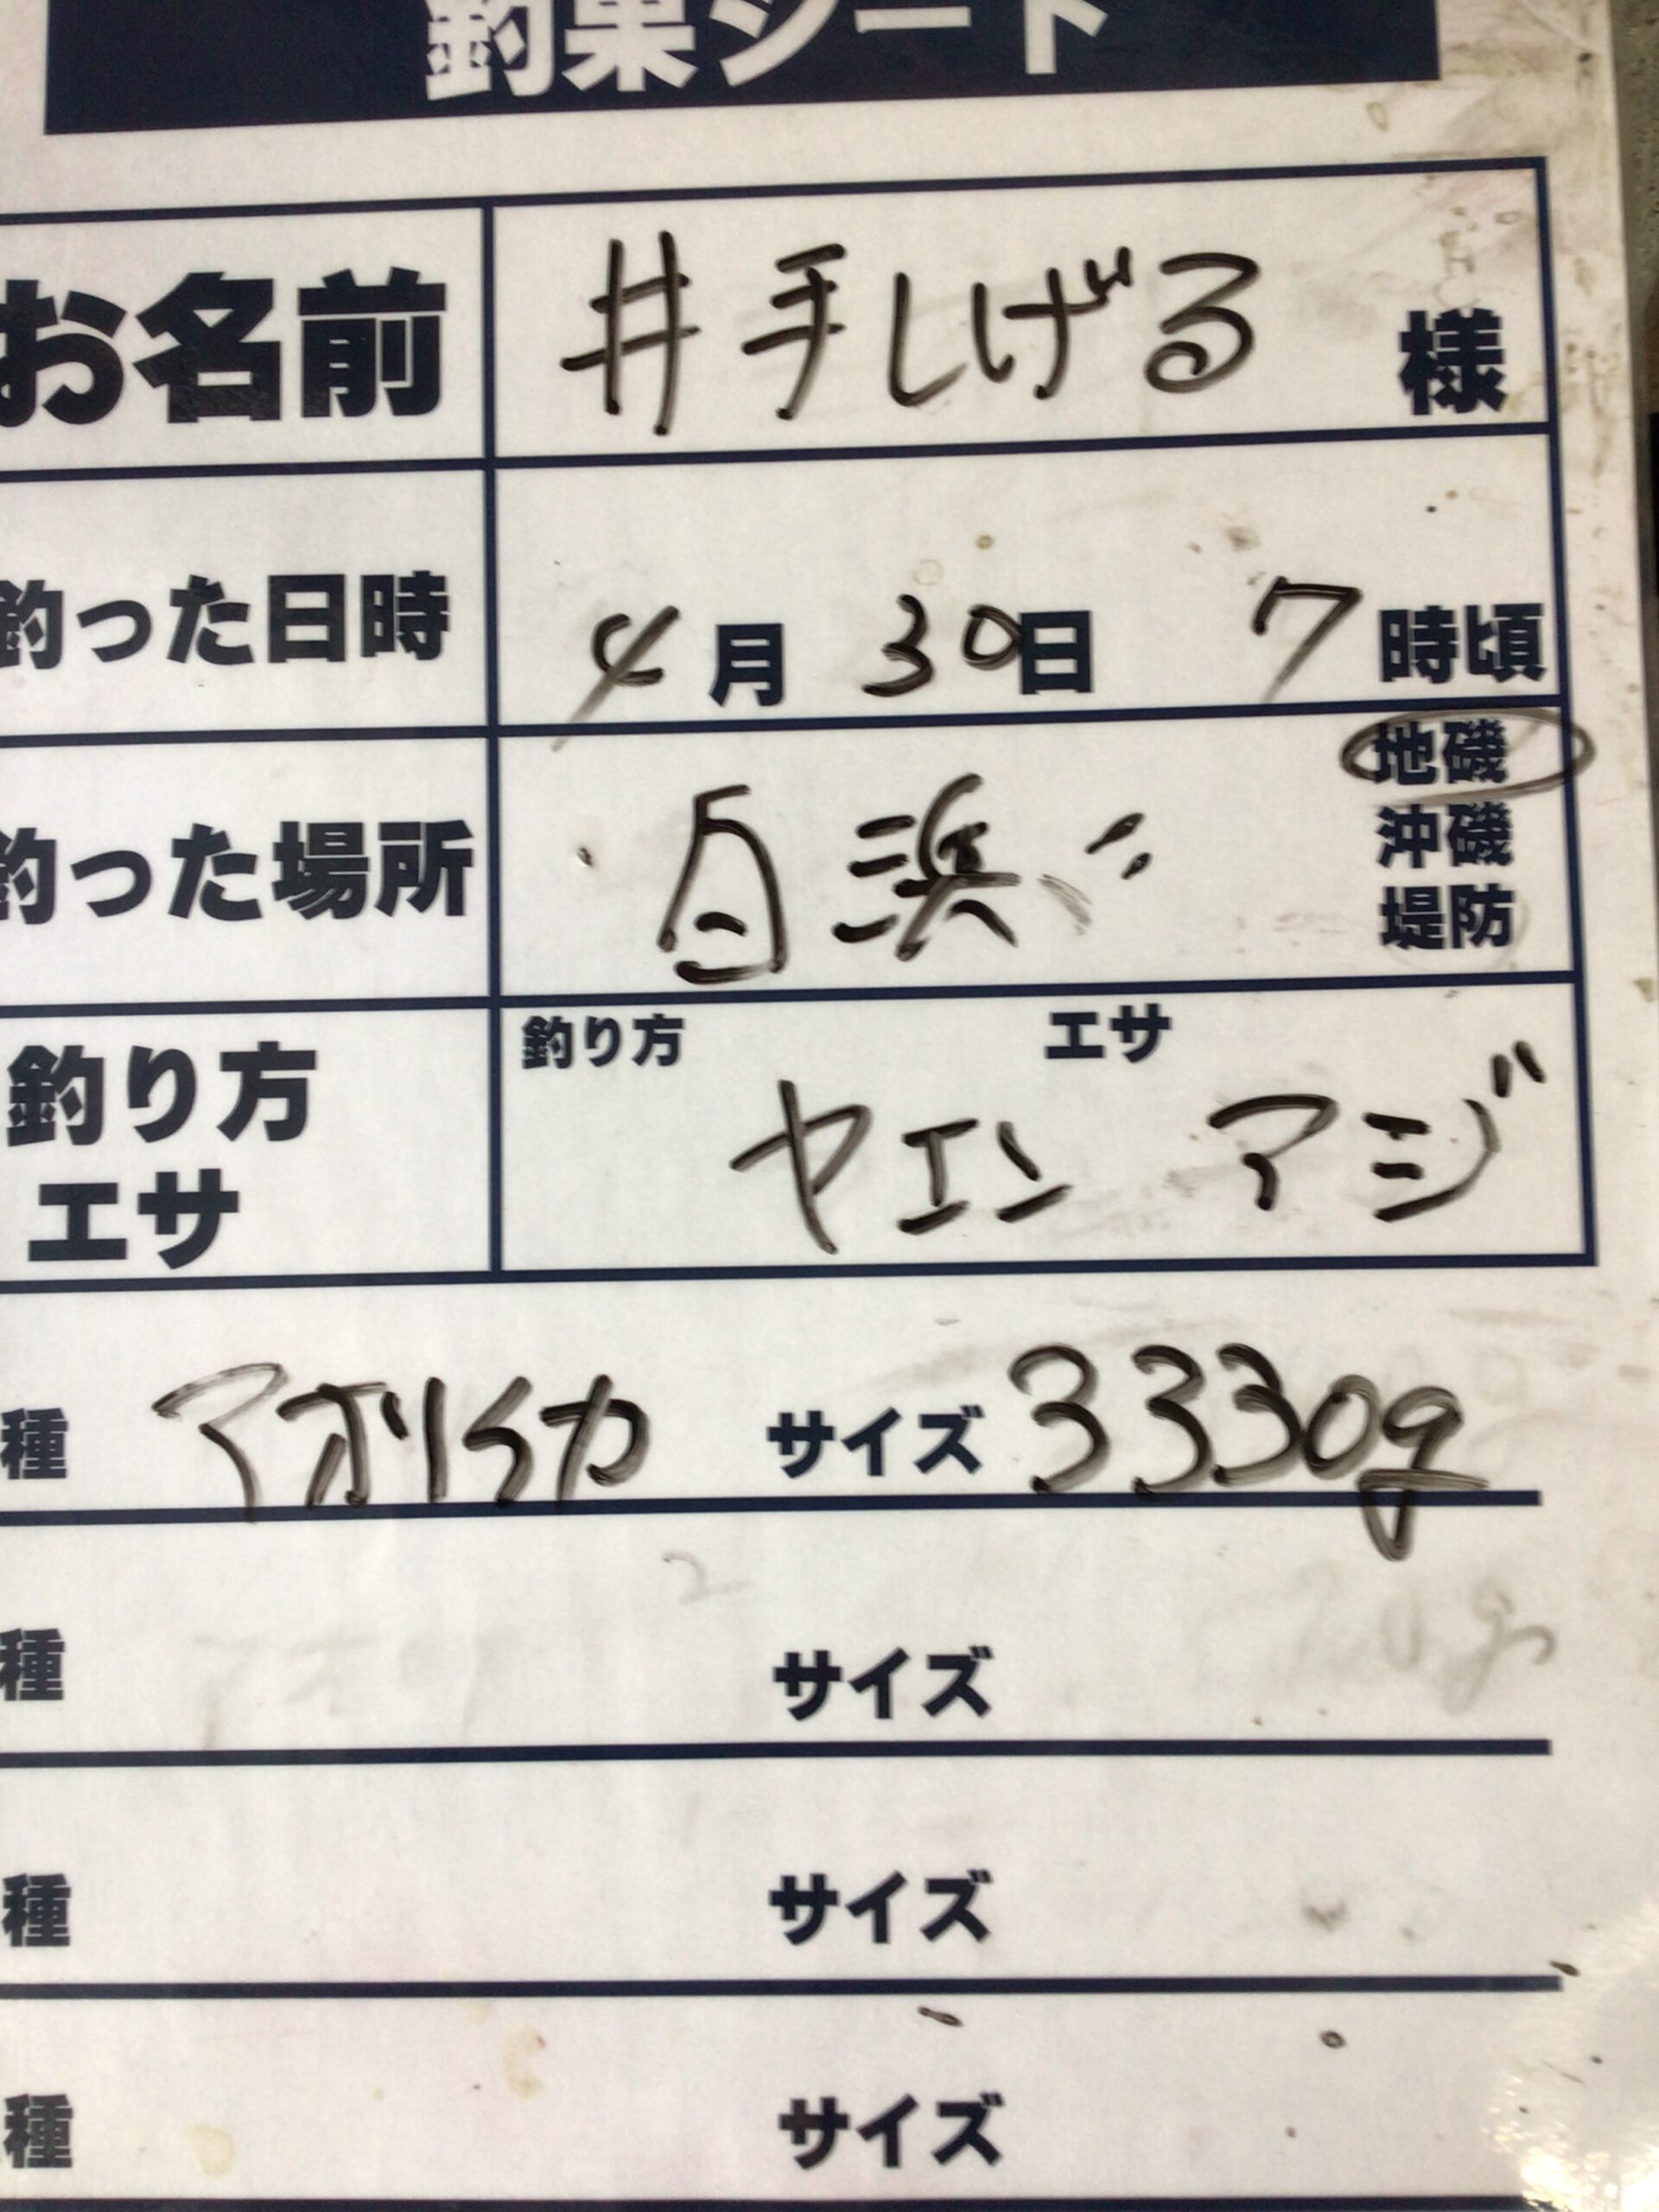 釣果シート
お名前 井手しげる 様
釣った日時 4月 30日 7時頃
釣った場所 白浜 地磯
沖磯
堤防
釣り方 エサ
釣り方 ヤエン アジ
エサ
種 アオリイカ サイズ 3330g
種 サイズ
種 サイズ
種 サイズ